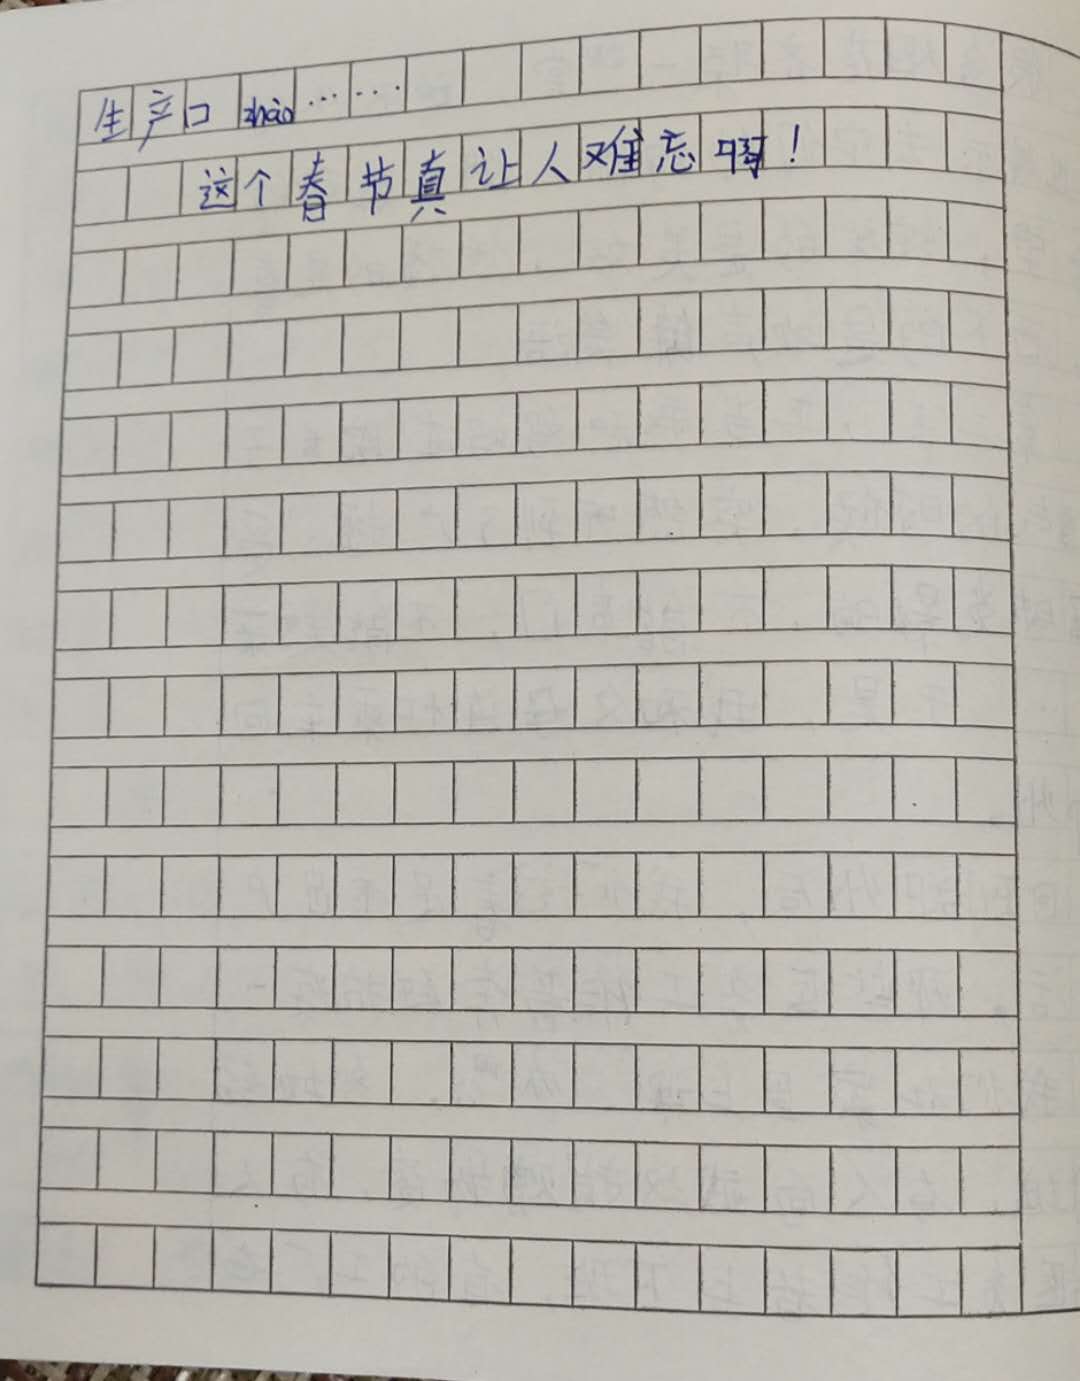 生产口zhào……
这个春节真让人难忘啊！